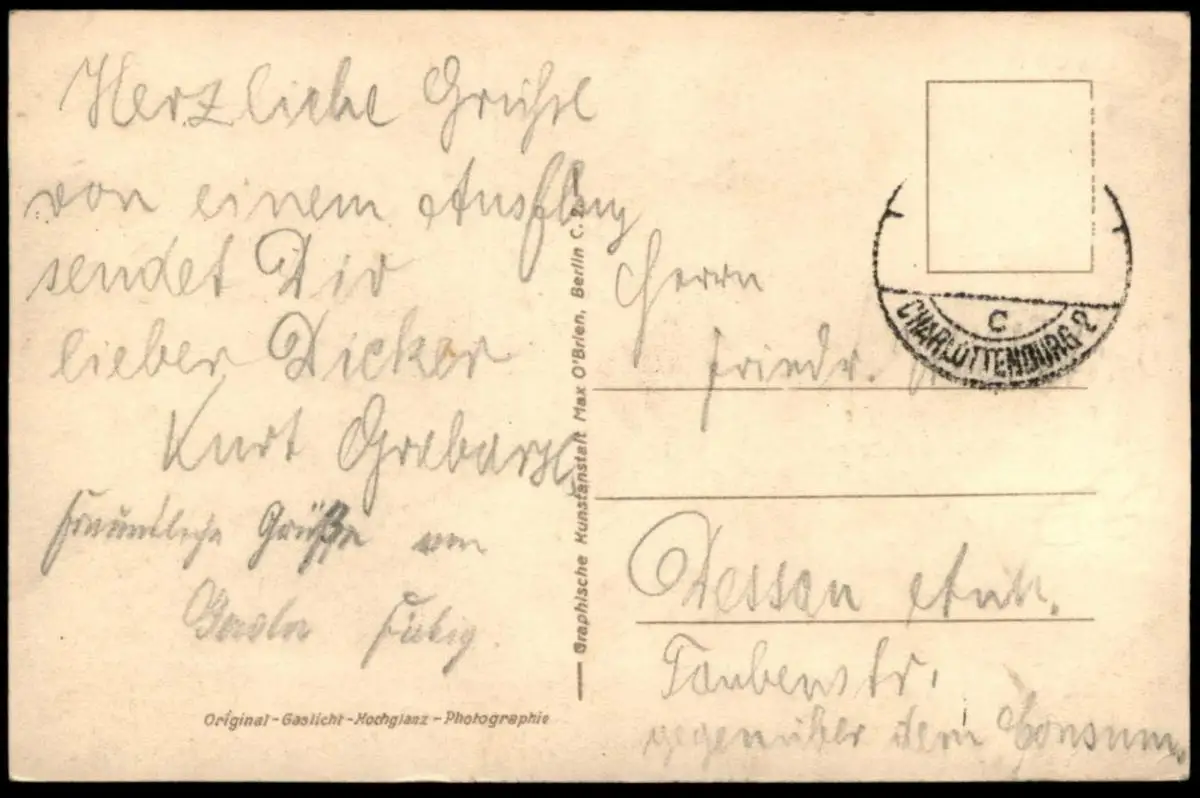 Herzliche Grühse
von einem Ausflug
sendet Dir
lieber Dicker
Kurt
Freundliche Grüße von
Original-Gaslicht-Hochglanz-Photographie
Graphische Kunstanstalt Max O'Brien, Berlin C. 2.
C
CHARLOTTENBURG 2
Herrn
Friedr.
Dessau Anh.
Taubenstr.
gegenüber dem Consum.